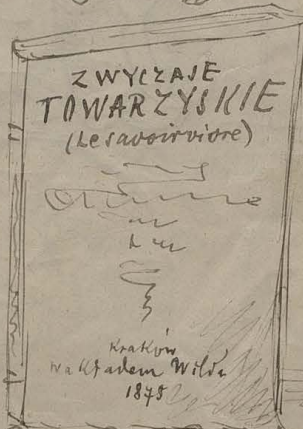 ZWYCZAJE
TOWARZYSKIE
(Le savoir vivre)
Kraków
nakładem Wild
1875